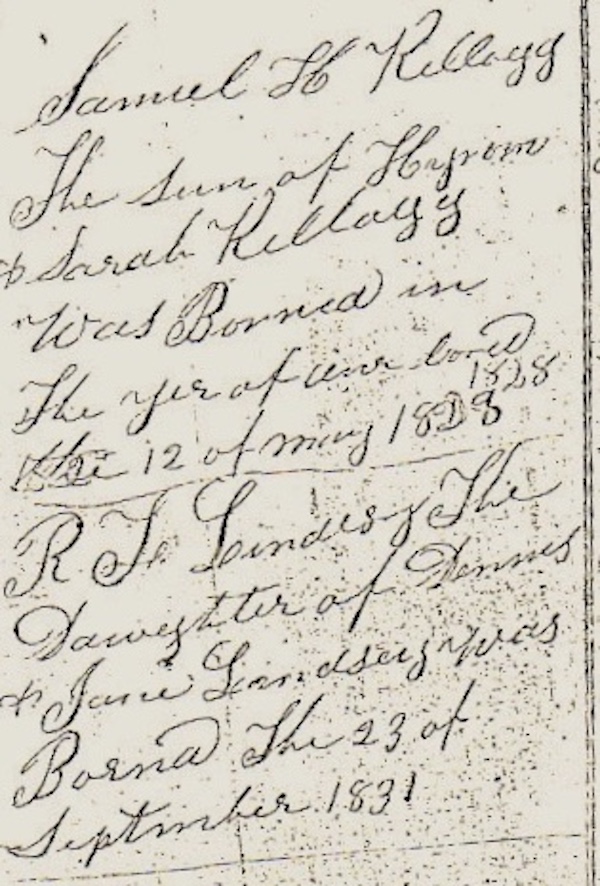 Samuel H Kellogg
The sun of Hyrom
& Sarah Kellogg
Was Borned in
The yer of our lord
1828
the 12 of may 1828
R F Lindsey The
Dawehter of Dennis
& Jane Lindsey was
Bornd The 23 of
September 1831